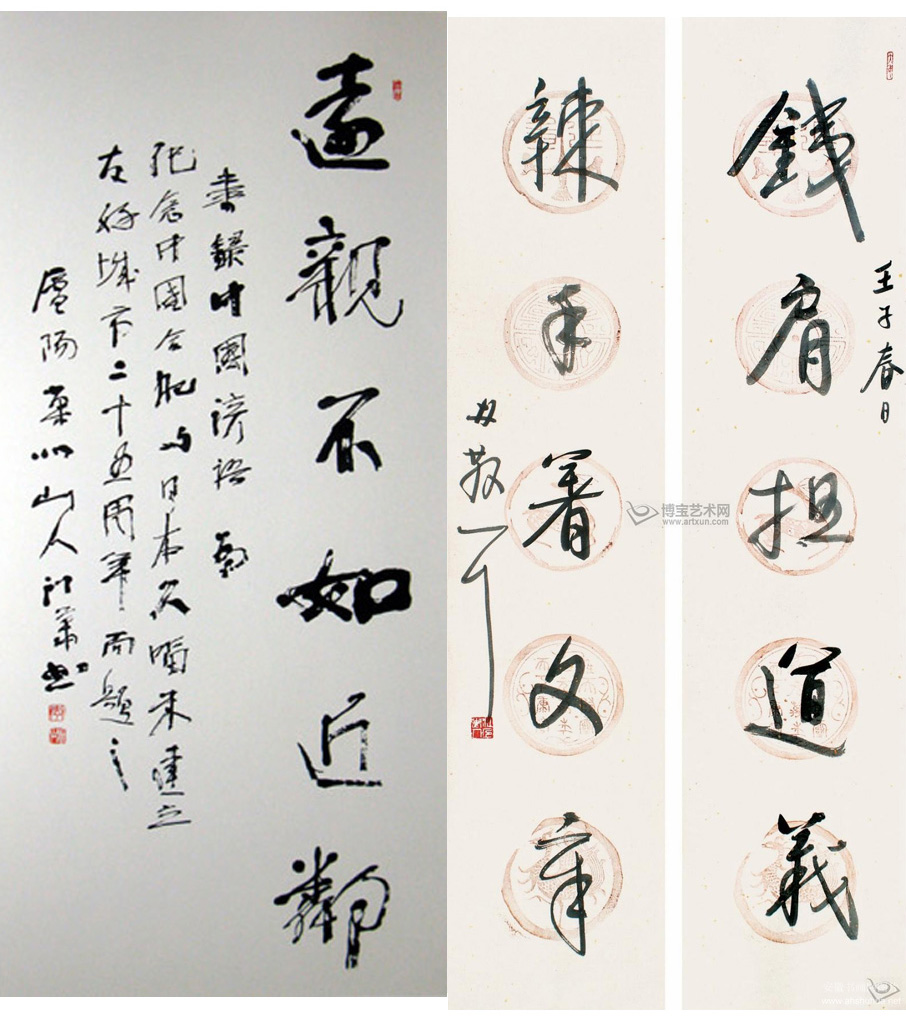 遠親不如近鄰
書錄中國諺語句
紀念中國合肥与日本久留米建立
友好城市二十五周年而題之
廬陽巢山人
壬子春日
鐵肩担道義
辣手著文章
博宝艺术网
www.artxun.com